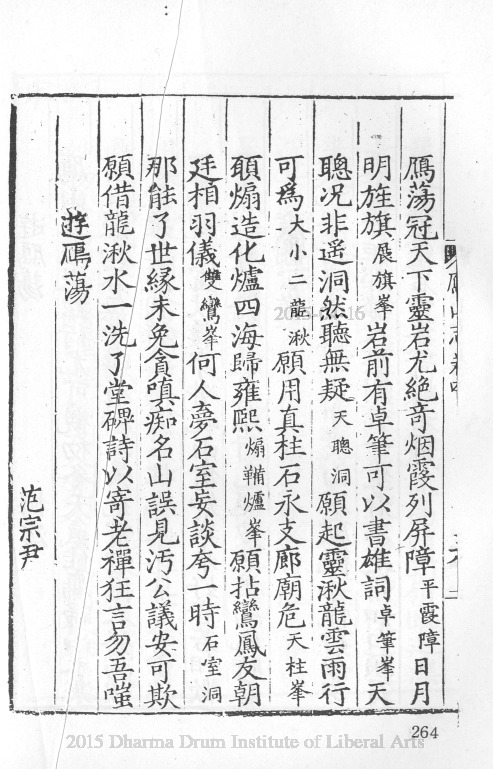 鴈荡冠天下靈岩尤絶竒烟霞列屏障平霞障日月
明旌旗展旗峯岩前有卓筆可以書雄詞卓筆峯天
聰况非遥洞然聽無疑天聰洞願起靈湫龍雲雨行
可爲大小二龍湫願用真柱石永支廊廟危天柱峯
願煽造化爐四海歸雍熙煽鞴爐峯願拈鸞鳳友朝
廷相羽儀雙鸞峯何人夢石室妄談夸一時石室洞
那能了世縁未免貪嗔痴名山誤見汚公議安可欺
願借龍湫水一洗了堂碑詩以寄老禪狂言勿吾嗤
遊鴈蕩
范宗尹
264
2015 Dharma Drum Institute of Liberal Arts